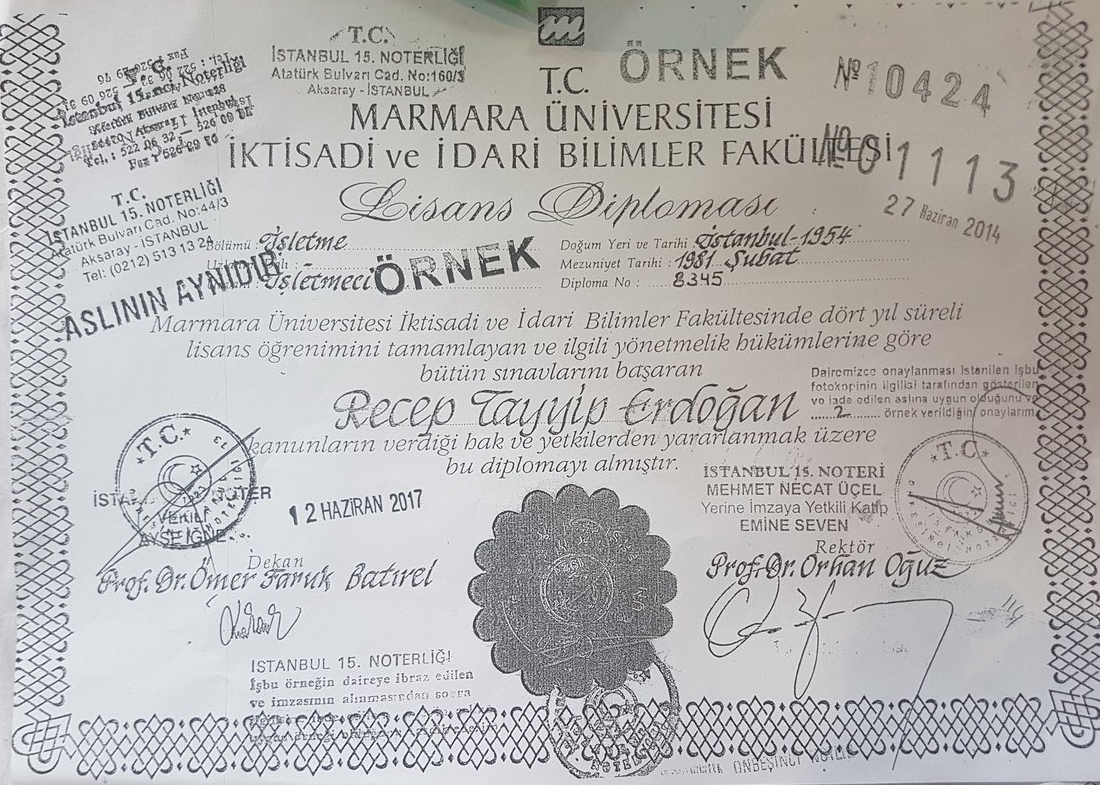 T.C.
İSTANBUL 15. NOTERLİĞİ
Atatürk Bulvarı Cad. No:160/3
Aksaray - İSTANBUL
T.C.
ÖRNEK
Nº10424
MARMARA ÜNİVERSİTESİ
İKTİSADİ ve İDARİ BİLİMLER FAKÜLTESİ
Nº01113
27 Haziran 2014
Lisans Diploması
İstanbul 15. Noterliği
T.C.
İSTANBUL 15. NOTERLİĞİ
Atatürk Bulvarı Cad. No:44/3
Aksaray - İSTANBUL
Tel: (0212) 513 13 24
ASLININ AYNIDIR
Bölümü : İşletme
İşletmeci
ÖRNEK
Doğum Yeri ve Tarihi : İstanbul-1954
Mezuniyet Tarihi : 1981 Şubat
Diploma No : 8345
Marmara Üniversitesi İktisadi ve İdari Bilimler Fakültesinde dört yıl süreli
lisans öğrenimini tamamlayan ve ilgili yönetmelik hükümlerine göre
bütün sınavlarını başaran
Recep Tayyip Erdoğan
kanunların verdiği hak ve yetkilerden yararlanmak üzere
bu diplomayı almıştır.
Dairemizce onaylanması istenilen işbu
fotokopinin ilgilisi tarafından gösterilen
ve iade edilen aslına uygun olduğunu ve
2 örnek verildiğin onaylarım
T.C.
12 HAZİRAN 2017
İSTANBUL 15. NOTERİ
MEHMET NECAT ÜÇEL
Yerine İmzaya Yetkili Katip
EMİNE SEVEN
T.C.
Dekan
Prof. Dr. Ömer Faruk Batırel
Rektör
Prof. Dr. Orhan Oğuz
İSTANBUL 15. NOTERLİĞİ
İşbu örneğin daireye ibraz edilen
ve imzasının alınmasından sonra